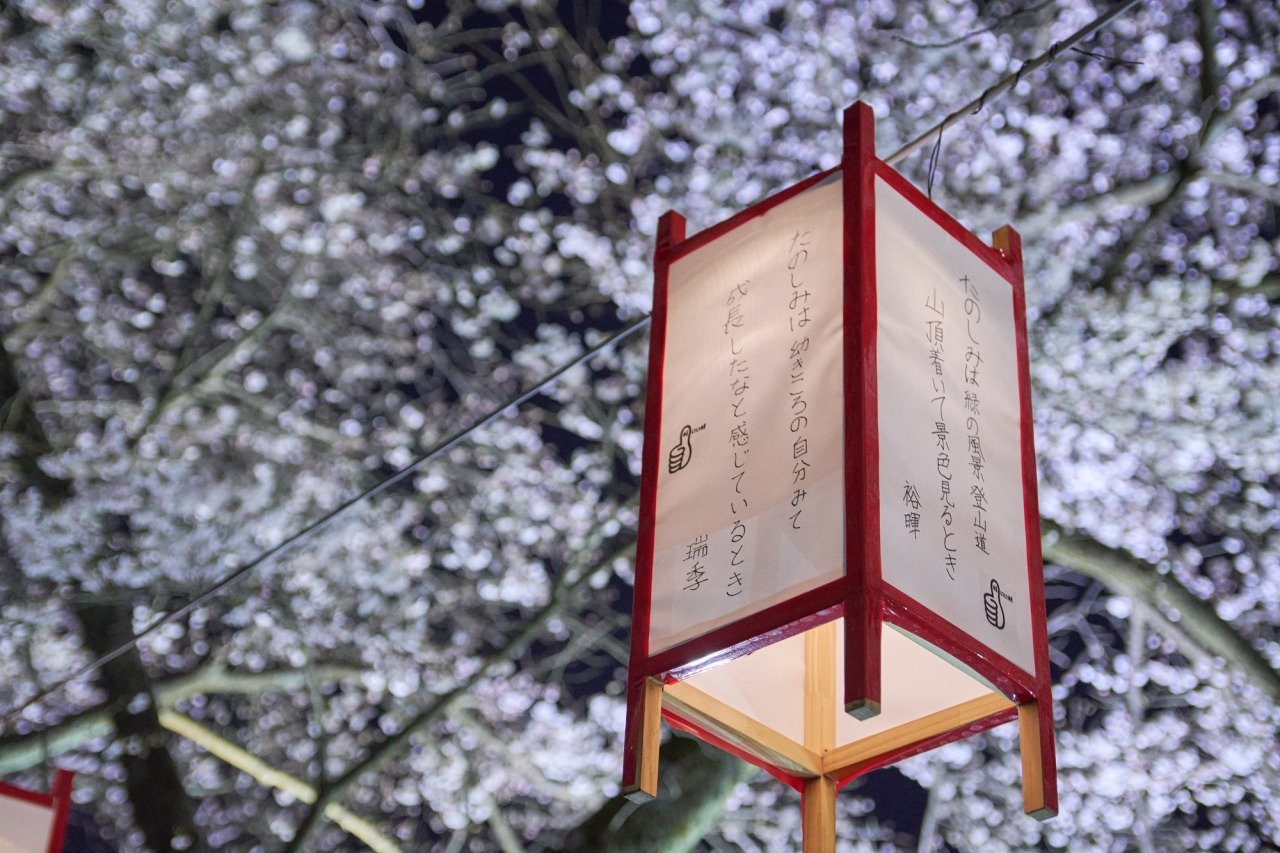 たのしみは幼きころの自分みて
成長したなと感じているとき
瑞季
たのしみは緑の風景登山道
山頂着いて景色見るとき
裕暉